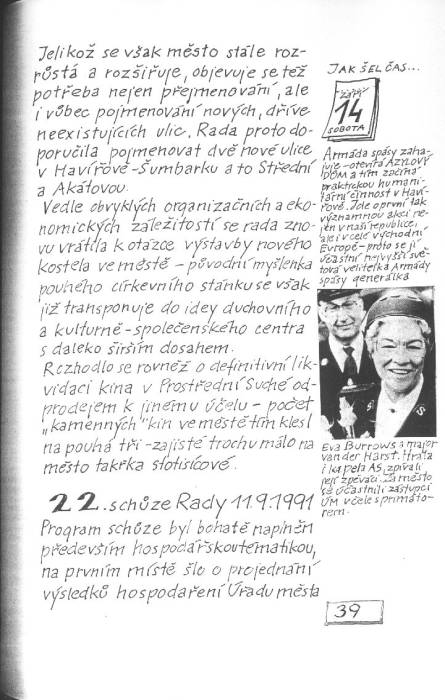 Jelikož se však město stále roz-
růstá a rozšiřuje, objevuje se též
potřeba nejen přejmenování, ale
i vůbec pojmenování nových, dříve
neexistujících ulic. Rada proto do-
poručila pojmenovat dvě nové ulice
v Havířově-Šumbarku a to Střední
a Akátovou.
Vedle obvyklých organizačních a eko-
nomických záležitostí se rada zno-
vu vrátila k otázce výstavby nového
kostela ve městě – původní myšlenka
pouhého církevního stánku se však
již transponuje do idey duchovního
a kulturně-společenského centra
s daleko širším dosahem.
Rozhodlo se rovněž o definitivní lik-
vidaci kina v Prostřední Suché od-
prodejem k jinému účelu – počet
„kamenných" kin ve městě tím klesl
na pouhá tři – zajisté trochu málo na
město takřka stotisícové.
22. schůze Rady 11.9.1991
Program schůze byl bohatě naplněn
především hospodářskou tématikou,
na prvním místě šlo o projednání
výsledků hospodaření Úřadu města
JAK ŠEL ČAS...
září
14
SOBOTA
Armáda spásy zaha-
juje – otevírá AZYLOVÝ
DŮM a tím začíná
praktickou humani-
tární činnost v Haví-
řově. Jde o první tak
významnou akci ne-
jen v naší republice,
ale i v celé východní
Evropě – proto se jí
účastní nejvyšší svě-
tová velitelka Armády
spásy generálka
Eva Burrows a major
van der Harst. Hrála
i kapela AS, zpívali
její zpěváci. Za město
se účastnili zástupci
ÚM v čele s primáto-
rem.
39